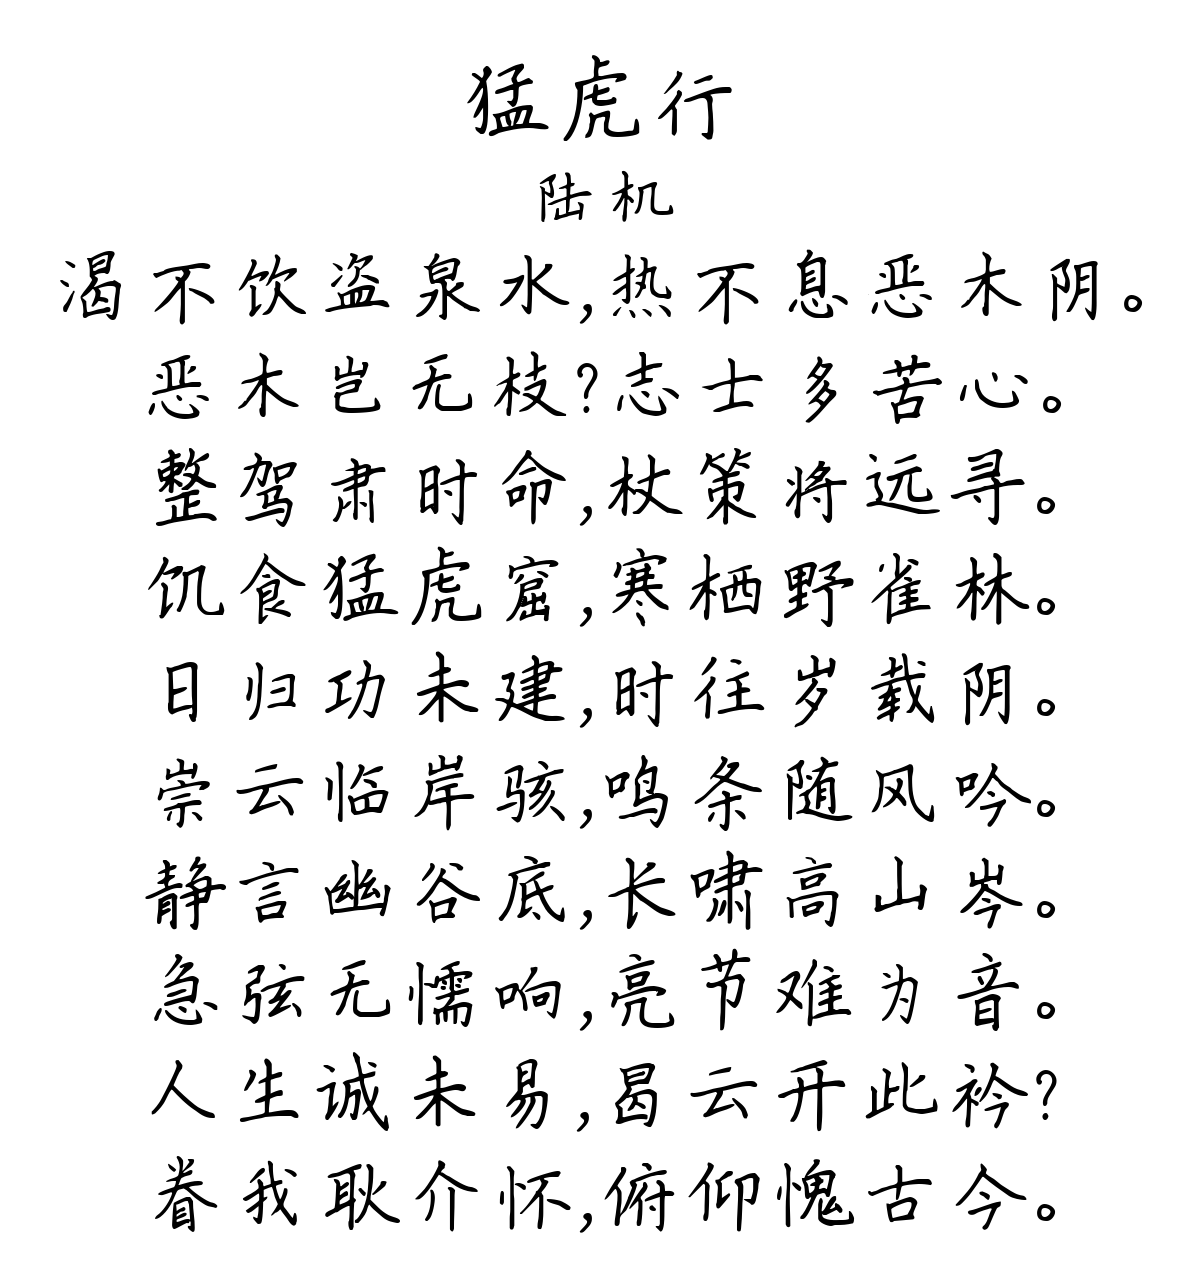 猛虎行
陆机
渴不饮盗泉水,热不息恶木阴。
恶木岂无枝?志士多苦心。
整驾肃时命,杖策将远寻。
饥食猛虎窟,寒栖野雀林。
日归功未建,时往岁载阴。
崇云临岸骇,鸣条随风吟。
静言幽谷底,长啸高山岑。
急弦无懦响,亮节难为音。
人生诚未易,曷云开此衿?
眷我耿介怀,俯仰愧古今。